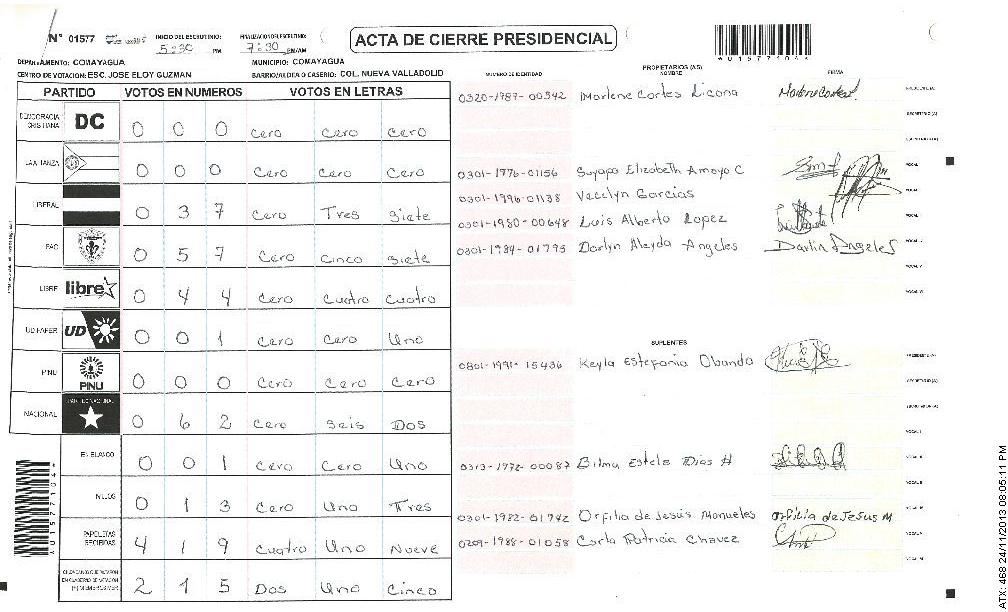 N° 01577 INICIO DEL ESCRUTINIO: 5:30 PM FINALIZACION DEL ESCRUTINIO: 7:30 PM/AM
ACTA DE CIERRE PRESIDENCIAL
*01577104*
DEPARTAMENTO: COMAYAGUA MUNICIPIO: COMAYAGUA
CENTRO DE VOTACION: ESC. JOSE ELOY GUZMAN BARRIO/ALDEA O CASERIO: COL. NUEVA VALLADOLID
PARTIDO VOTOS EN NUMEROS VOTOS EN LETRAS
DEMOCRACIA CRISTIANA DC 0 0 0 Cero Cero Cero
LA ALIANZA 0 0 0 Cero Cero Cero
LIBERAL 0 3 7 Cero Tres Siete
PAC 0 5 7 Cero Cinco Siete
LIBRE libre 0 4 4 Cero Cuatro Cuatro
UD FAPER UD 0 0 1 Cero Cero Uno
PINU PINU 0 0 0 Cero Cero Cero
NACIONAL PARTIDO NACIONAL 0 6 2 Cero Seis Dos
EN BLANCO 0 0 1 Cero Cero Uno
NULOS 0 1 3 Cero Uno Tres
PAPELETAS RECIBIDAS 4 1 9 Cuatro Uno Nueve
CIUDADANOS QUE VOTARON EN CUADERNO DE VOTACION (+) MIEMBROS MER 2 1 5 Dos Uno Cinco
NUMERO DE IDENTIDAD PROPIETARIOS (AS) NOMBRE FIRMA
0320-1987-00342 Marlene Cortes Licona Marlene Cortes PRESIDENTE (A)
SECRETARIO (A)
0301-1776-01156 Suyapa Elizabeth Amaya C VOCAL
0301-1996-01138 Vecelyn Garcias
0301-1980-00648 Luis Alberto Lopez
0301-1984-01795 Darlyn Aleyda Angeles Darlin Angeles
SUPLENTES
0801-1991-15436 Keyla Estefania Obando PRESIDENTE (A)
SECRETARIO (A)
0313-1978-00087 Bilma Estela Dias H
0301-1982-01742 Orfilia de Jesús Manueles Orfilia de Jesus M
0209-1988-01058 Carla Patricia Chavez
ATX: 468 24/11/2013 08:05:11 PM